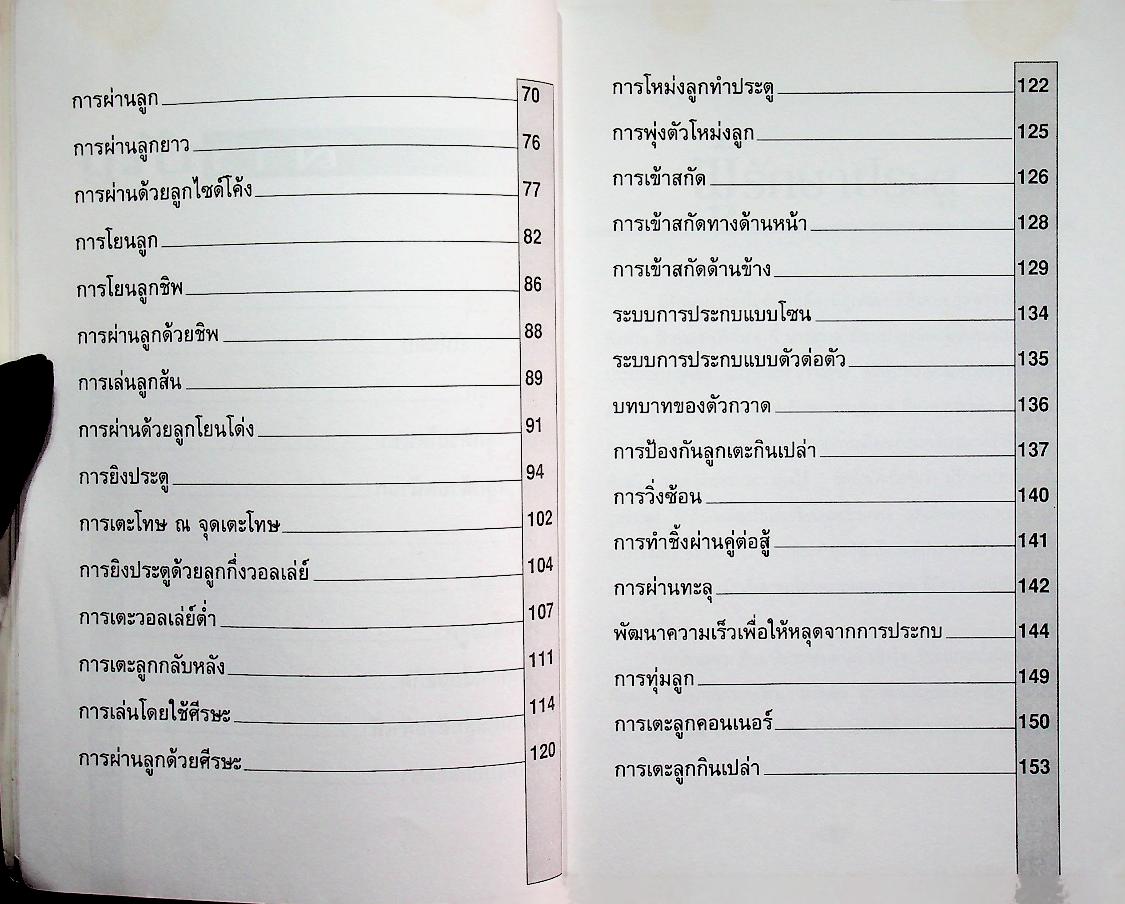 การผ่านลูก 70
การผ่านลูกยาว 76
การผ่านด้วยลูกไซด์โค้ง 77
การโยนลูก 82
การโยนลูกชิพ 86
การผ่านลูกด้วยชิพ 88
การเล่นลูกส้น 89
การผ่านด้วยลูกโยนโด่ง 91
การยิงประตู 94
การเตะโทษ ณ จุดเตะโทษ 102
การยิงประตูด้วยลูกกึ่งวอลเล่ย์ 104
การเตะวอลเล่ย์ต่ำ 107
การเตะลูกกลับหลัง 111
การเล่นโดยใช้ศีรษะ 114
การผ่านลูกด้วยศีรษะ 120
การโหม่งลูกทำประตู 122
การพุ่งตัวโหม่งลูก 125
การเข้าสกัด 126
การเข้าสกัดทางด้านหน้า 128
การเข้าสกัดด้านข้าง 129
ระบบการประกบแบบโซน 134
ระบบการประกบแบบตัวต่อตัว 135
บทบาทของตัวกวาด 136
การป้องกันลูกเตะกินเปล่า 137
การวิ่งซ้อน 140
การทำชิ้งผ่านคู่ต่อสู้ 141
การผ่านทะลุ 142
พัฒนาความเร็วเพื่อให้หลุดจากการประกบ 144
การทุ่มลูก 149
การเตะลูกคอนเนอร์ 150
การเตะลูกกินเปล่า 153